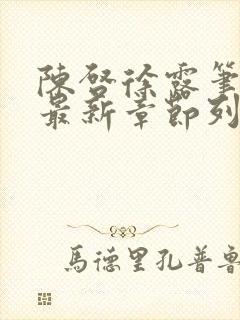 陳啓徐露筆
最新章節列
馬德里孔普魯